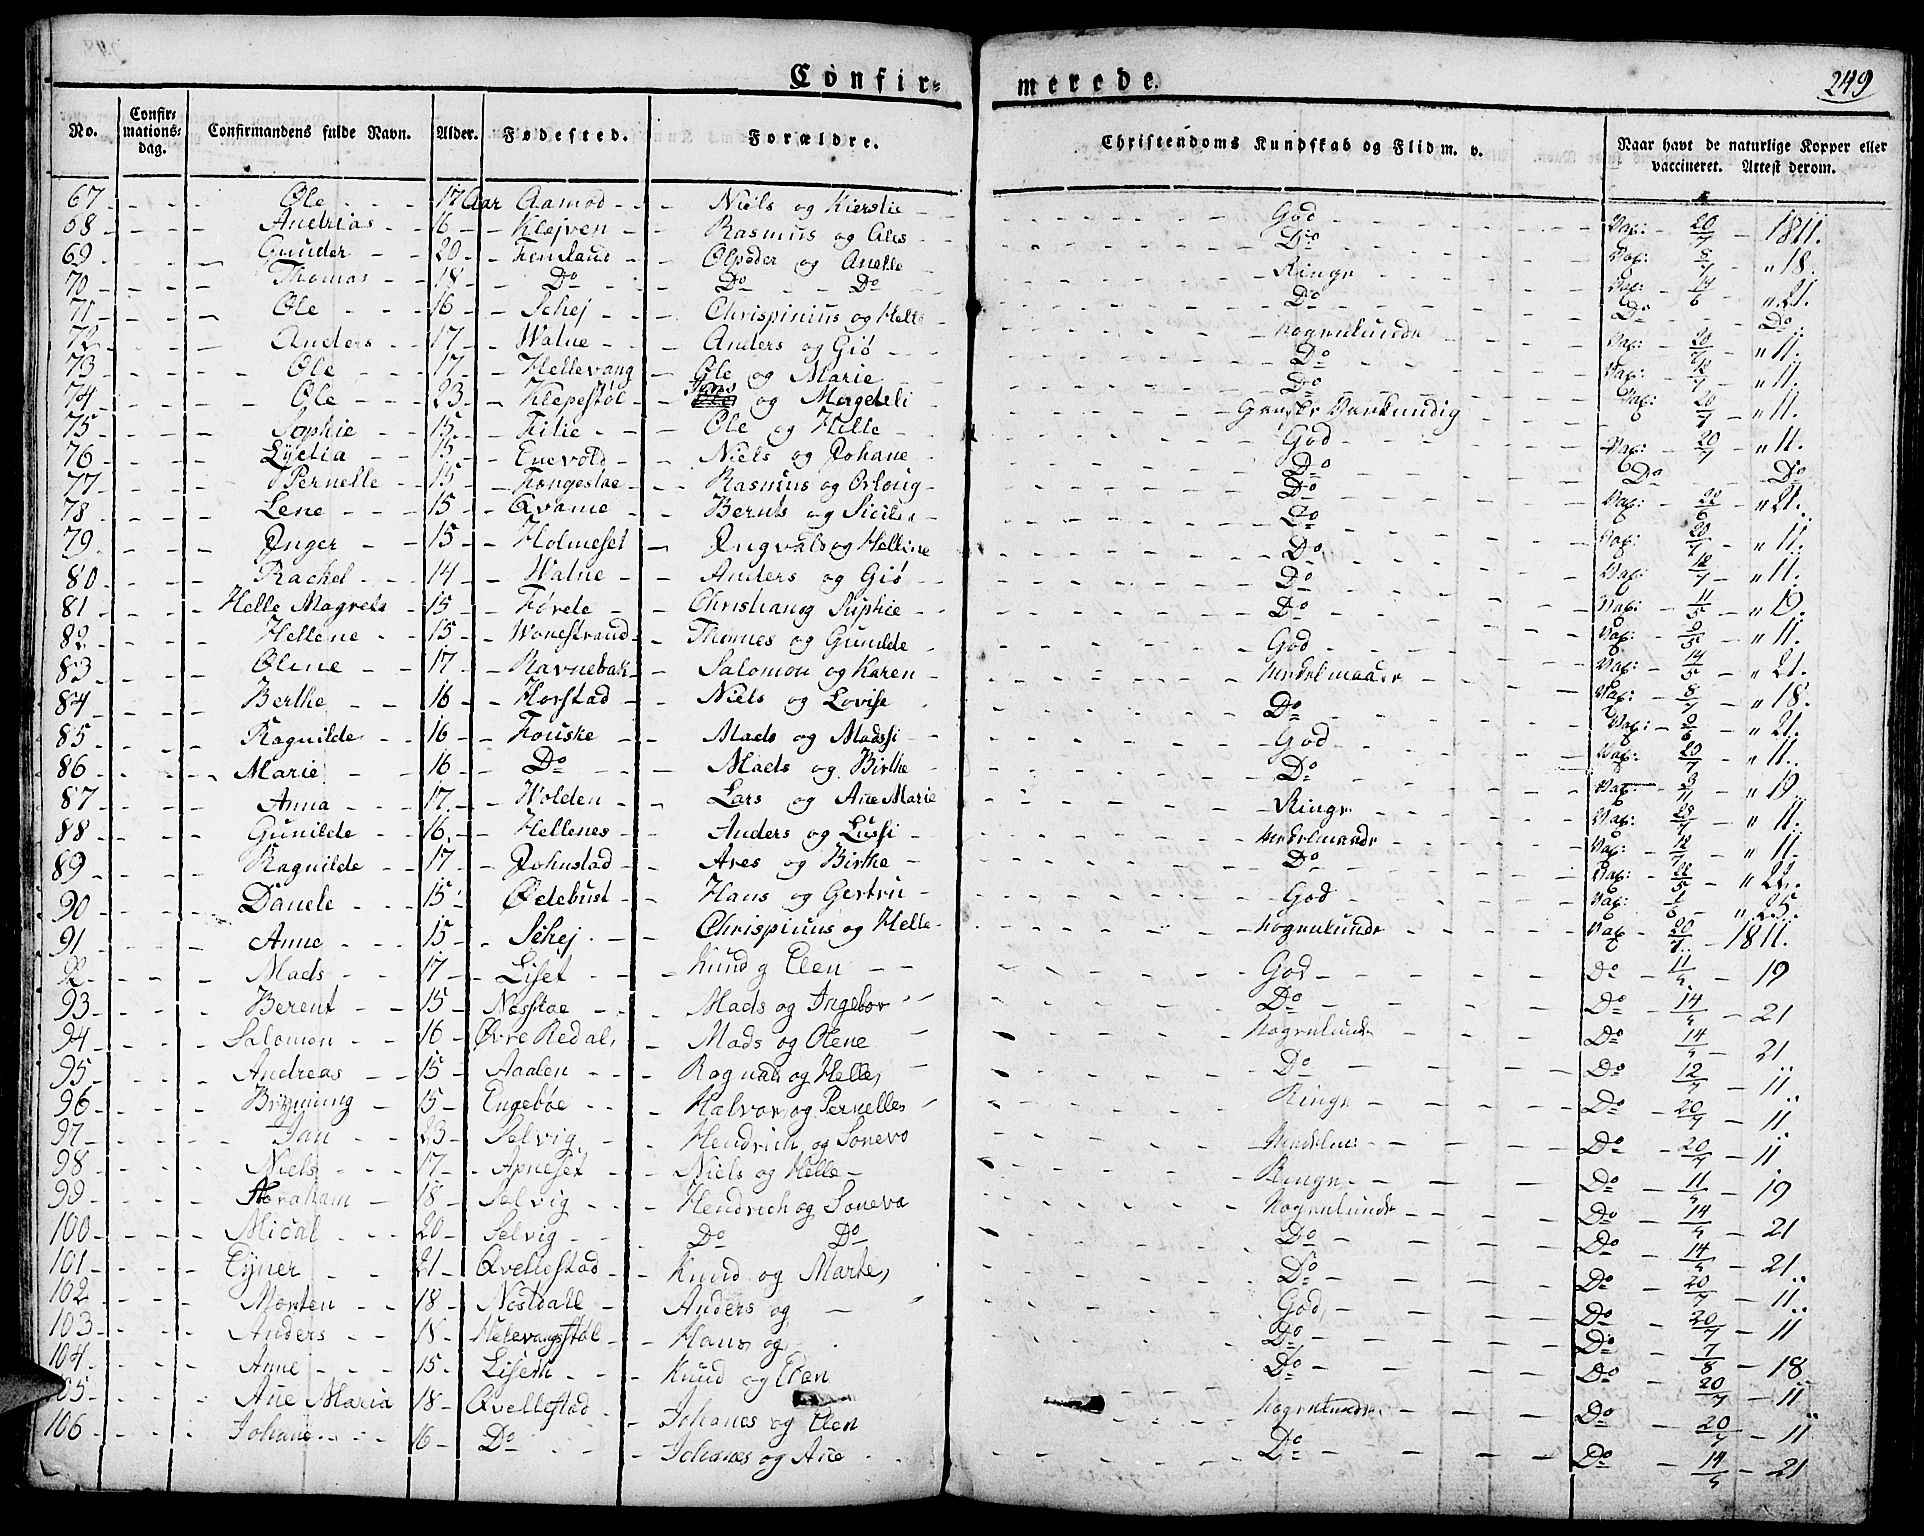 Confir-merede.
249
No.
Confirmationsdag.
Confirmandens fulde Navn.
Alder.
Fødested.
Forældre.
Christendoms Kundskab og Flid m. v.
Naar havt de naturlige Kopper eller vaccineret. Attest derom.
67 Ole 17 Aar Aamod Niels og Kierstie God Vax: 20/7 1811.
68 Andrias 16 Klejven Rasmus og Ales Do Vax: 8/7 " 18.
69 Gunder 20 Femland og Anette Ringe Vax: 14/6 " 21.
70 Thomas 18 Do Do Do Do Do Do
71 Ole 16 Schej Chrispinius og Helle Nogenlunde Vax: 20/7 " 11.
72 Anders 17 Walne Anders og Giø Do Vax: 12/7 " 11.
73 Ole 17 Hellevang Ole og Marie Do Vax: 20/7 " 11.
74 Ole 23 Klepestøl Jens og Mageteli Vax: 20/7 " 11.
75 Sophie 15 Filie Ole og Helle God Do Do
76 Lydia 15 Enevold Niels og Johane Do Vax: " 21.
77 Pernelle 15 Tongestøe Rasmus og Orloug Do Vax: 20/7 " 11.
78 Lene 15 Qvame Bernts og Do Vax: 12/7 " 11.
79 Inger 15 Holmeset Ingvald og Helline Do Vax: 11/5 " 19.
80 Rachel 14 Walne Anders og Giø Do Vax: " 11.
81 Helle Magrete 15 Førete Christian og Sophie Do Vax: 14/5 " 21.
82 Hellene 15 Wonestrand Thomes og Gunilde God Vax: 8/7 " 18.
83 Olene 17 Ravnebak Salomon og Karen Vax: " 21.
84 Berthe 16 Horstad Niels og Lovise Do Vax: 20/7 " 11.
85 Ragnilde 16 Fouske Mads og Madssi God Vax: " 19
86 Marie 16 Do Mads og Birthe Do Vax: 20/7 " 11.
87 Anna 17 Wolden Lars og Ane Marie Ringe Vax: 12/7 " 11.
88 Gunilde 16 Hellenes Anders og Lussi Vax: " 22.
89 Ragnilde 17 Johnstad Ares og Birthe Do Vax: " 25.
90 Danele 15 Ødebust Hans og Gertru God Vax 20/7 1811.
91 Anne 15 Schej Chrispinius og Helle Nogenlunde Do 11/5 19
92 Mads 17 Liset Knud g Elen God Do 14/5 21
93 Berent 15 Nesstøe Mads og Ingebor Do Do 14/5 21
94 Salomon 16 Øvre Redal Mads og Olene Nogenlunde Do 12/7 11
95 Andreas 15 Aalen Ragnald og Helle Do Do 20/7 11
96 Brynning 15 Engebøe Halvor og Pernelle Ringe Do 20/7 11
97 Jan 23 Selvig Hendrich og Soneva Do 11/5 19
98 Niels 17 Apneset Niels og Helle Ringe Do 14/5 21
99 Abraham 18 Selvig Hendrich og Soneva Nogenlunde Do 14/5 21
100 Mical 20 Selvig Do Do Do Do 20/7 11
101 Eyner 21 Qvellestad Knud og Marte Do Do 20/7 11
102 Morten 18 Nostdall Anders og God Do 7/8 18
103 Anders 18 Helevangstøl Hans og Do Do 20/7 11
104 Anne 15 Liseth Knud og Elen Do Do
105 Ane Maria 18 Qvellestad Johanes og Elen Nogenlunde Do 20/7 11
106 Johane 16 Do Johanes og Ane Do Do 14/5 21